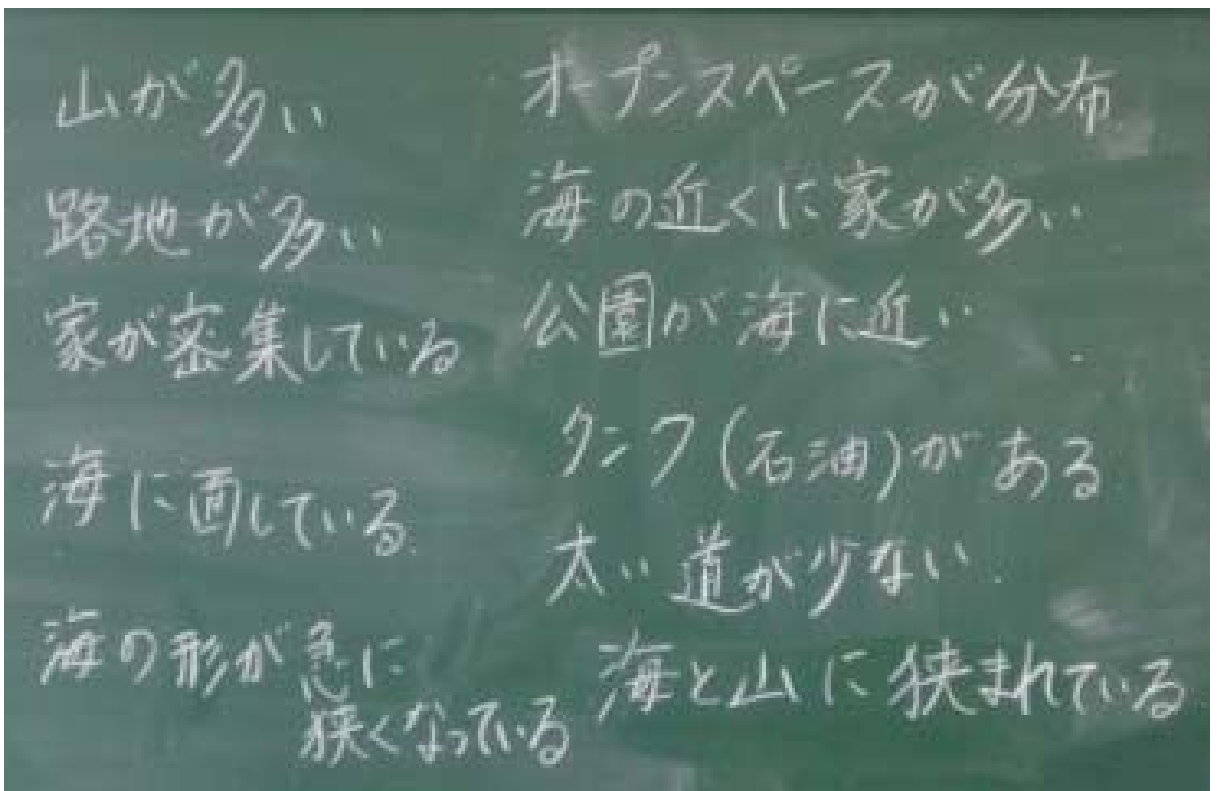 山が多い
路地が多い
家が密集している
海に面している
海の形が急に
狭くなっている
オープンスペースが分布
海の近くに家が多い
公園が海に近い
タンク(石油)がある
太い道が少ない
海と山に狭まれている